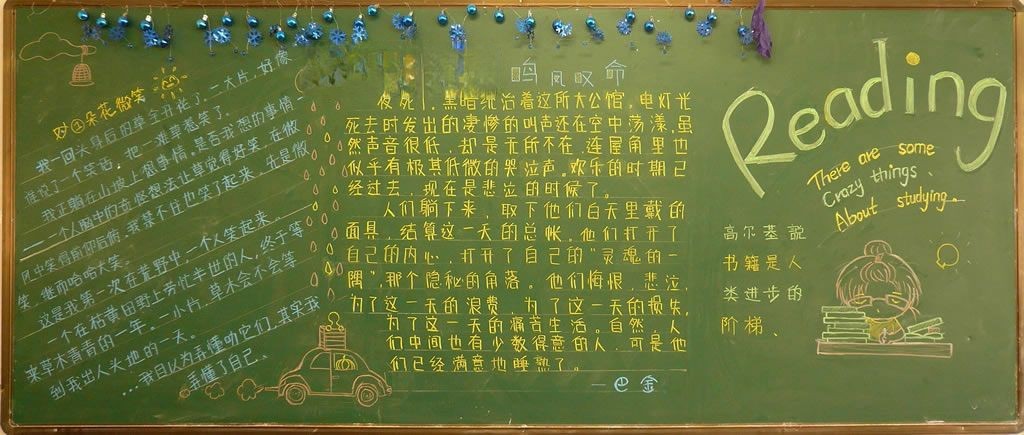 妙①朵花微笑
我一回头身后的草全开花了，一大片，好像
谁说了一个笑话，把一滩草惹笑了。
我正躺在山坡上想事情。是否我想的事情-
——一个人脑中的奇怪想法让草觉得好笑，在微
风中笑得前仰后俯。我禁不住也笑了起来，先是微
笑，继而哈哈大笑。
这是我第一次在荒野中，一个人笑起来。
一个在枯黄田野上劳忙半世的人，终于等
来草木青青的一年。一小片，草木会不会等
到我出人头地的一天。
...我自以为弄懂听它们，其实我
弄懂了自己、
鸣凤叹命
夜死了，黑暗统治着这所大公馆。电灯光
死去时发出的凄惨的叫声还在空中荡漾，虽
然声音很低，却是无所不在，连屋角里也
似乎有极其低微的哭泣声。欢乐的时期已
经过去，现在是悲泣的时候了。
人们躺下来，取下他们白天里戴的
面具，结算这一天的总帐。他们打开了
自己的内心，打开了自己的“灵魂的一
隅”，那个隐秘的角落。他们悔恨，悲泣，
为了这一天的浪费，为了这一天的损失，
为了这一天的痛苦生活。自然，人
们中间也有少数得意的人，可是他
们已经满意地睡熟了。
—巴金
Reading
There are some
Crazy things、
About studying。
高尔基说
书籍是人
类进步的
阶梯、